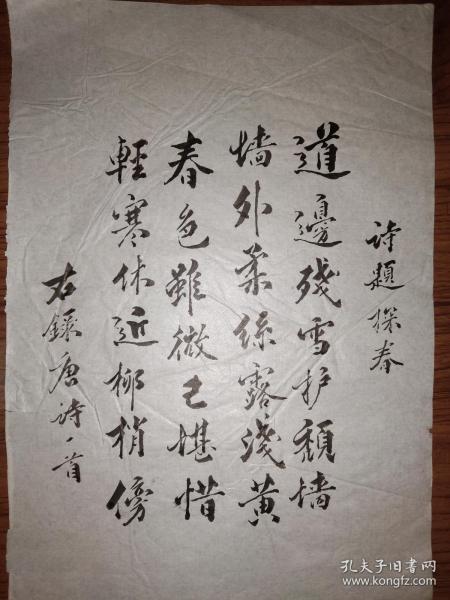 诗题探春
道邊残雪护頽墙
墙外柔絲露淺黄
春色雖微已堪惜
輕寒休近柳梢傍
右錄唐诗一首
孔夫子旧书网
www.kongfz.com